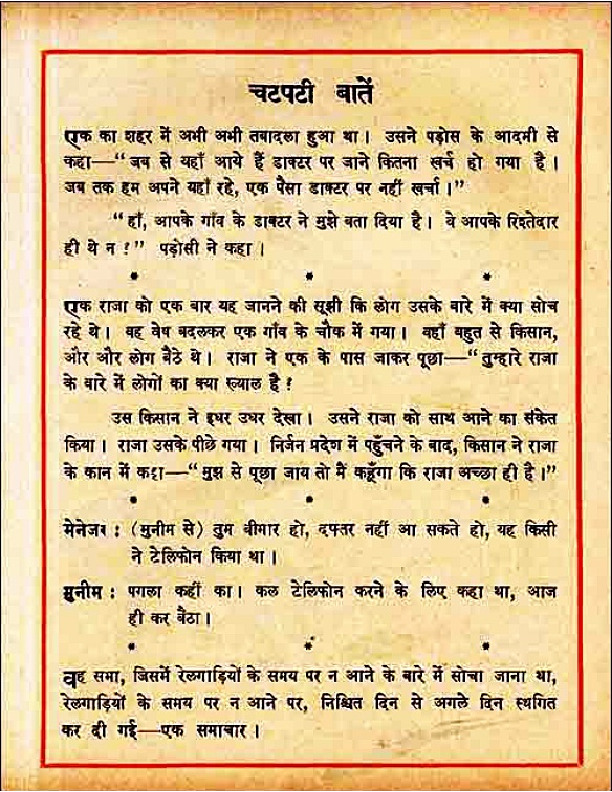 चटपटी बातें
एक का शहर में अभी अभी तबादला हुआ था। उसने पड़ोस के आदमी से
कहा—“जब से यहाँ आये हैं डाक्टर पर जाने कितना खर्च हो गया है।
जब तक हम अपने यहाँ रहे, एक पैसा डाक्टर पर नहीं खर्चा।”
“हाँ, आपके गाँव के डाक्टर ने मुझे बता दिया है। वे आपके रिश्तेदार
ही थे न?” पड़ोसी ने कहा।
* * *
एक राजा को एक बार यह जानने की सूझी कि लोग उसके बारे में क्या सोच
रहे थे। वह वेष बदलकर एक गाँव के चौक में गया। वहाँ बहुत से किसान,
और और लोग बैठे थे। राजा ने एक के पास जाकर पूछा—“तुम्हारे राजा
के बारे में लोगों का क्या ख्याल है?
उस किसान ने इधर उधर देखा। उसने राजा को साथ आने का संकेत
किया। राजा उसके पीछे गया। निर्जन प्रदेश में पहुँचने के बाद, किसान ने राजा
के कान में कहा—“मुझ से पूछा जाय तो मैं कहूँगा कि राजा अच्छा ही है।”
* * *
मेनेजर : (मुनीम से) तुम बीमार हो, दफ्तर नहीं आ सकते हो, यह किसी
ने टेलिफोन किया था।
मुनीम : पगला कहीं का। कल टेलिफोन करने के लिए कहा था, आज
ही कर बैठा।
* * *
वह सभा, जिसमें रेलगाड़ियों के समय पर न आने के बारे में सोचा जाना था,
रेलगाड़ियों के समय पर न आने पर, निश्चित दिन से अगले दिन स्थगित
कर दी गई—एक समाचार।